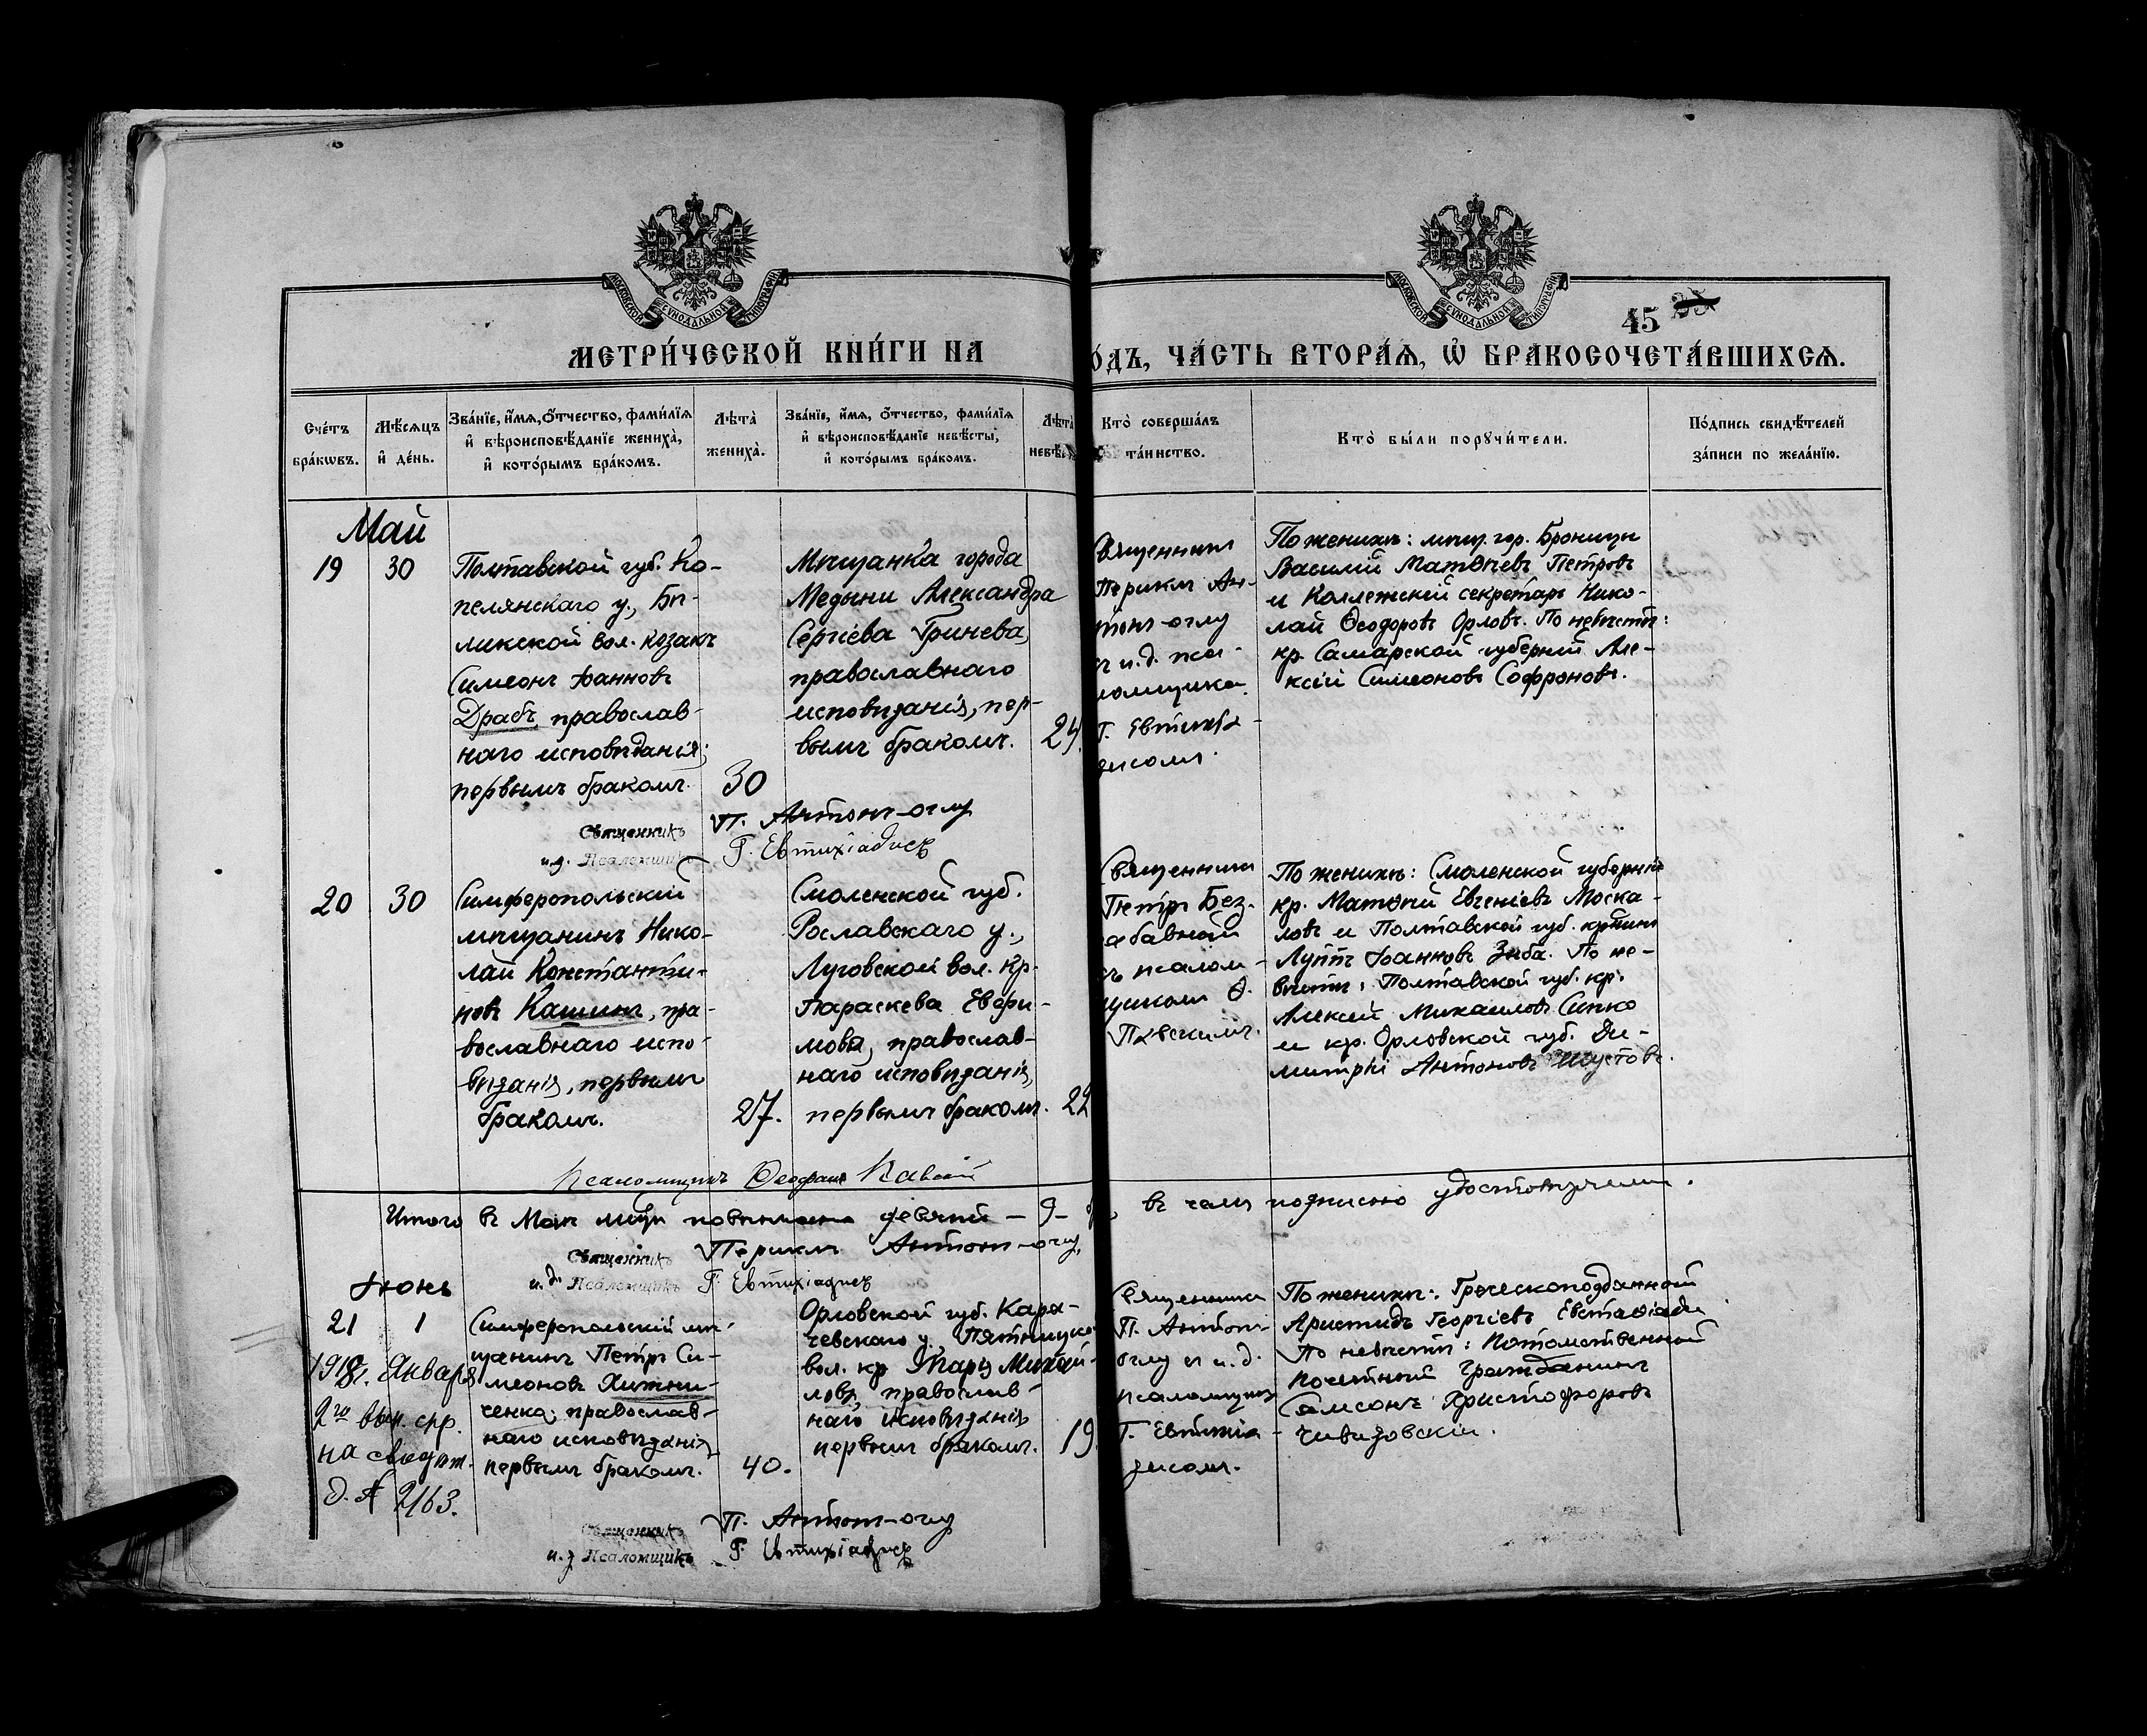 МОСКОВСКОЙ СУНОДАЛЬНОЙ ТИПОГРАФІИ
МОСКОВСКОЙ СУНОДАЛЬНОЙ ТИПОГРАФІИ
45
МЕТРИ́ЧЕСКОЙ КНИ́ГИ НА
О́ДЪ, ЧА́СТЬ ВТОРА́Я, Ѡ БРАКОСОЧЕТА́ВШИХСЯ.
Сче́тъ бра́кѡвъ.
Мѣ́сяцъ и де́нь.
Зва́нїе, и́мя, ѻ́тчество, фами́лїя и вѣроисповѣ́данїе жениха̀, и кото́рымъ бра́комъ.
Лѣта̀ жениха̀.
Зва́нїе, и́мя, ѻ́тчество, фами́лїя и вѣроисповѣ́данїе невѣ́сты, и кото́рымъ бра́комъ.
Лѣта̀ невѣ
Кто̀ соверша́лъ та́инство.
Кто̀ бы́ли порꙋчи́тели.
По́дпись свидѣ́телей за́писи по жела́нїю.
Май
19
30
Полтавской губ. Ко-
пелянскаго у., Бѣ-
ликской вол. козакъ
Симеонъ Іоанновъ
Драбъ, православ-
наго исповѣданія,
первымъ бракомъ.
30
Мѣщанка города
Медыни Александра
Сергіева Гринева,
православнаго
исповѣданія, пер-
вымъ бракомъ.
24.
Священникъ
Периклъ Ан-
тонъ-оглу
съ и.д. пса-
ломщика
Г. Евтихіа-
дисомъ.
По женихѣ: мѣщ. гор. Бронницы
Василій Матѳіевъ Петровъ
и Коллежскій секретарь Нико-
лай Ѳеодоровъ Орловъ. По невѣстѣ:
кр. Самарской губерніи Але-
ксій Симеоновъ Софроновъ.
Священникъ П. Антонъ-оглу
и.д. Псаломщикъ Г. Евтихіадисъ
20
30
Симферопольскій
мѣщанинъ Нико-
лай Константи-
новъ Кашинъ, пра-
вославнаго испо-
вѣданія, первымъ
бракомъ.
27.
Смоленской губ.
Рославскаго у.,
Луговской вол. кр.
Параскева Евфи-
мова, православ-
наго исповѣданія,
первымъ бракомъ.
22
Священникъ
Петръ Без-
абавный
съ псалом-
щикомъ Ѳ.
Павскимъ.
По женихѣ: Смоленской губерніи
кр. Матѳій Евгеніевъ Моска-
ловъ и Полтавской губ.
Іоанновъ Зиба. По не-
вѣстѣ: Полтавской губ. кр.
Алексій Михаиловъ Сипко
и кр. Орловской губ. Ди-
митрій Антоновъ Шустовъ.
Псаломщикъ Ѳеофанъ Павскій
Итого въ Маѣ мцѣ повѣнчано девять - 9 -
въ чемъ подписью удостовѣряемъ.
Священникъ Периклъ Антонъ-оглу
и.д. Псаломщикъ Г. Евтихіадисъ
Іюнь
21
1
1918г. Января
2го выд. спр.
на
2163.
Симферопольскій мѣ-
щанинъ Петръ Си-
меоновъ Хижни-
ченко, православ-
наго исповѣданія
первымъ бракомъ.
40.
Орловской губ. Кара-
чевскаго у. Пятницко
вол. кр. Михаи-
лова, православ-
наго исповѣданія
первымъ бракомъ.
19.
Священникъ
П. Антонъ-
оглу съ и.д.
псаломщика
Г. Евтихіа-
дисомъ.
По женихѣ: Греческоподданный
Аристидъ Георгіевъ Евстаѳіади
По невѣстѣ: Потомственный
почетный гражданинъ
Самсонъ Христофоровъ
Чивидовскій.
Священникъ П. Антонъ-оглу
и.д. Псаломщикъ Г. Евтихіадисъ